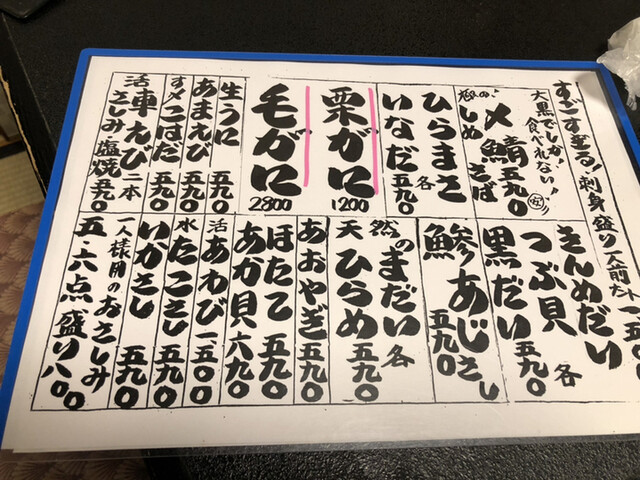 すごす盛る!刺身盛り一人前
大黒でしか!食べれない!
〆鯖 五九〇
しめさば
ひらまさ
いなだ
各五九〇
栗がに
1200
毛がに
2800
生うに 五九〇
あまえび 五九〇
す〆こはだ 五九〇
活車えび二本
さしみ塩焼 五九〇
きんめだい
つぶ貝
黒だい
各五九〇
鯵あじさし
五九〇
天然のまだい
ひらめ
各五九〇
あおやぎ 五九〇
ほたて 五九〇
あか貝 六九〇
活あわび 一、五〇〇
水たこさし 五九〇
いかさし 五九〇
一人様用のおさしみ
五・六点盛り八〇〇